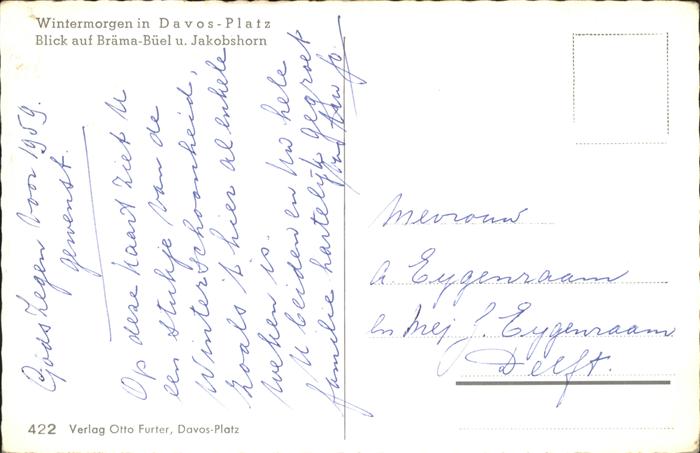 Wintermorgen in Davos-Platz
Blick auf Bräma-Büel u. Jakobshorn
Gods zegen voor 1959.
gewenst.
Op deze kaart ziet U
een stukje van de
Winterschoonheid,
zoals 't hier al enkele
weken is.
U beiden en Uw hele
familie hartelijk gegroet
Mevrouw
A. Eygenraam
en Mej. J. Eygenraam
Delft.
422 Verlag Otto Furter, Davos-Platz